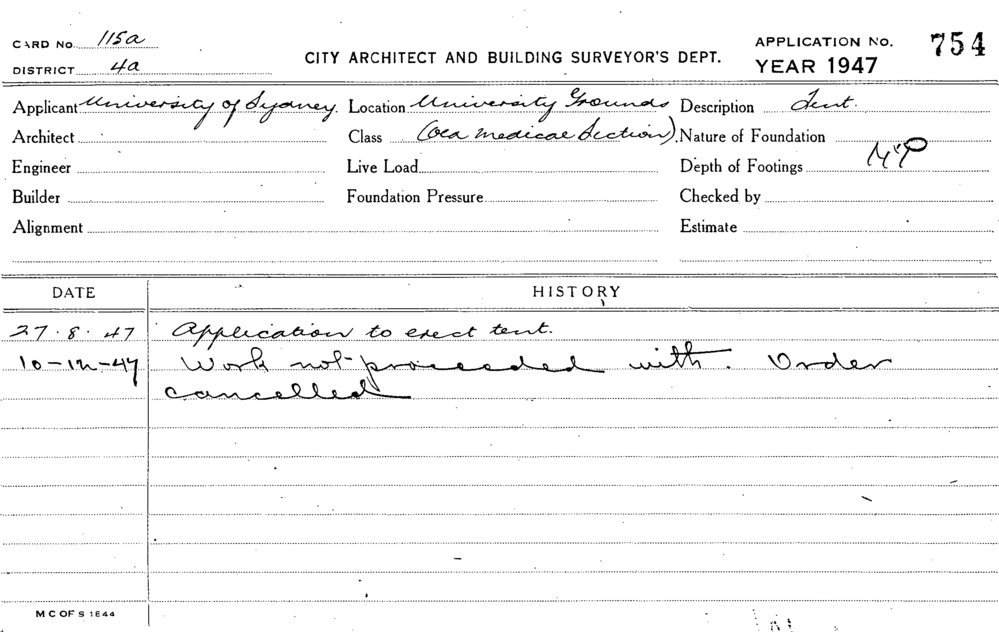 CARD No. 115a
DISTRICT 4a
CITY ARCHITECT AND BUILDING SURVEYOR'S DEPT.
APPLICATION No. 754
YEAR 1947
Applicant University of Sydney. Location University Grounds Description Tent.
Architect Class (Old Medical Section). Nature of Foundation
Engineer Live Load Depth of Footings
Builder Foundation Pressure Checked by
Alignment Estimate
DATE HISTORY
27.8.47 Application to erect tent.
10-12-47 Work not proceeded with. Order
cancelled
M C OF S 1844